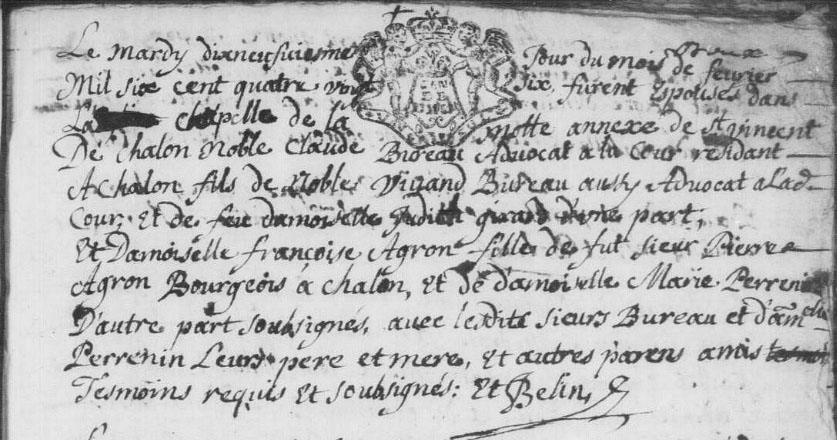 Le mardy dixneufviesme Jour du mois de fevrier
Mil six cent quatre vingt six furent Espousés dans
La chapelle de la motte annexe de St vincent
De Chalon Noble Claude Bureau Advocat a la Cour residant
A Chalon fils de Noble Vivand Bureau aussy Advocat a Lad
Cour, Et de feu damoiselle Judith girard d'une part,
Et Damoiselle françoise Agron fille de fut sieur Pierre
Agron Bourgeois a chalon, et de d'amoiselle Marie Perrenin
D'autre part soubsignés, avec lesdits sieurs Bureau et d'am
Perrenin Leurs pere et mere, et autres parens amis
Tesmoins requis Et soubsignés: Et Belin